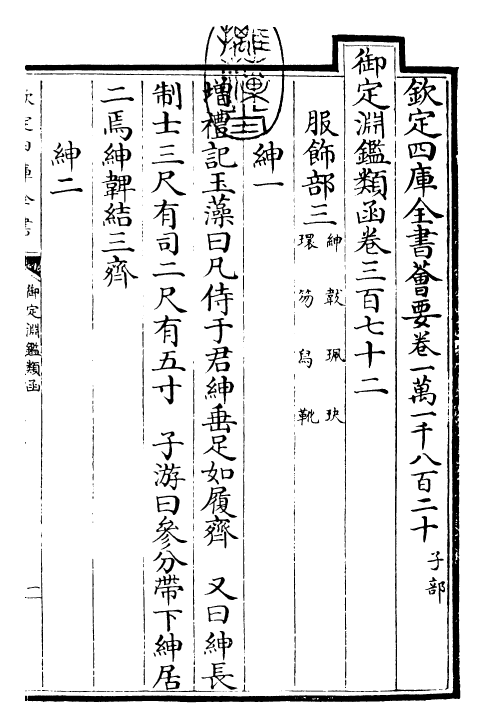 欽定四庫全書薈要卷一萬一千八百二十 子部
御定淵鑑類函卷三百七十二
服飾部三 紳 韍 珮 玦
環 笏 舄 靴
紳一
增禮記玉藻曰凡侍于君紳垂足如履齊 又曰紳長
制士三尺有司二尺有五寸 子游曰參分帶下紳居
二焉紳韠結三齊
紳二
欽定四庫全書
御定淵鑑類函
一